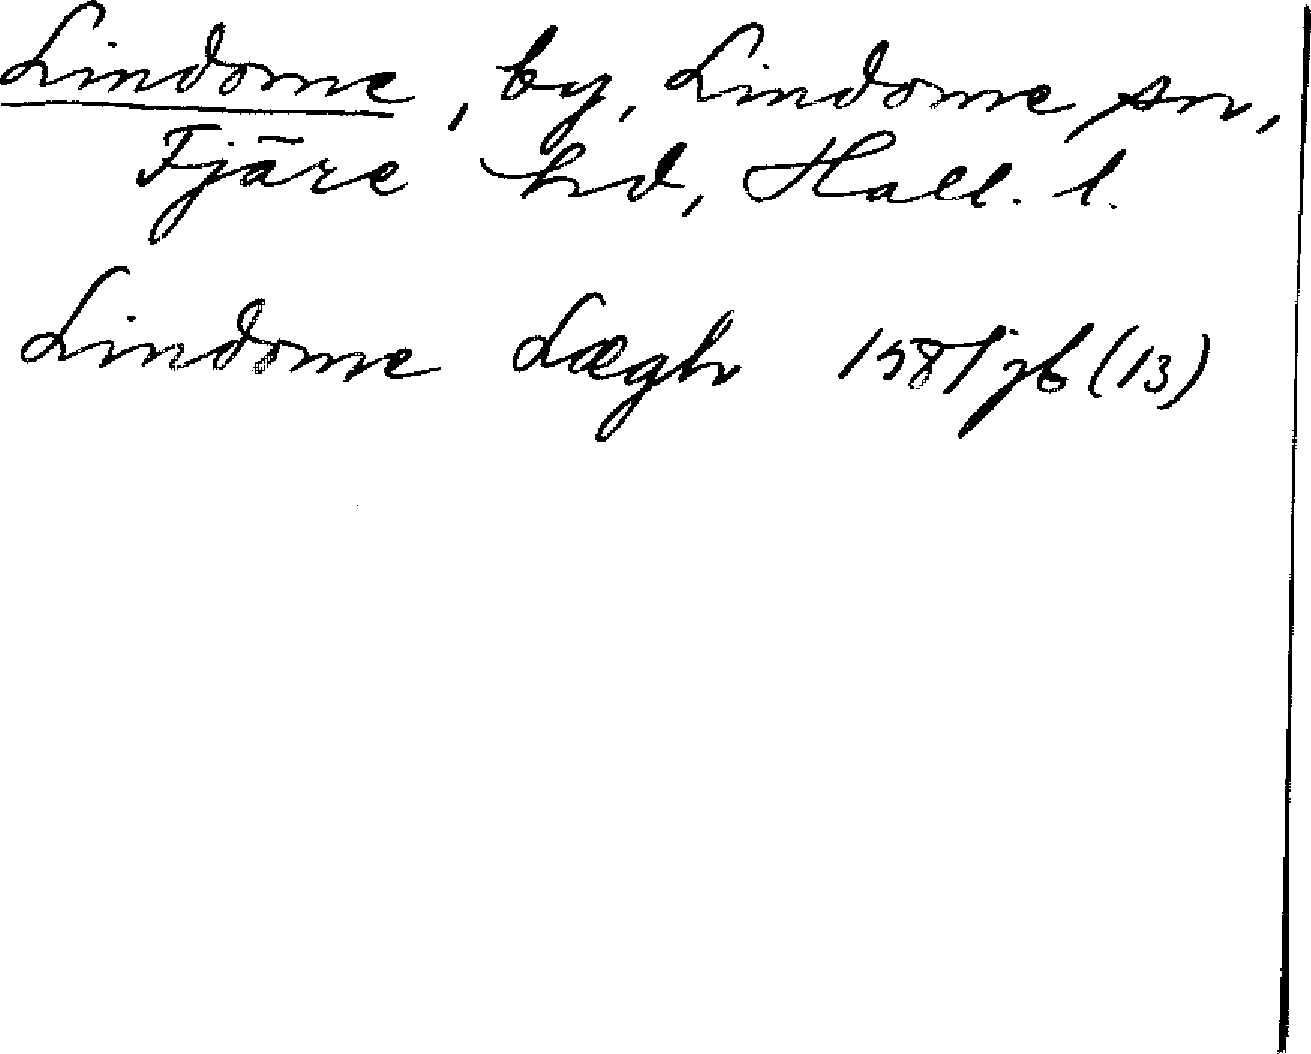 Lindome, by, Lindome sn,
Fjäre hd, Hall. l.
Lindome Lægh 1581 jb (13)